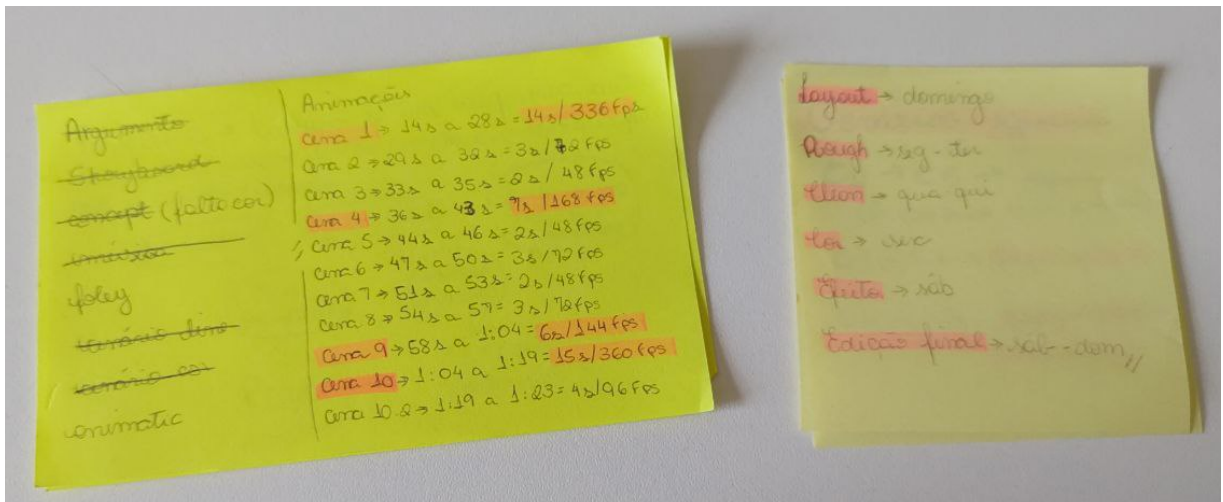 Argumento
Storyboard
concept (falta cor)
foley
cenário line
cenário cor
animatic
Animações
Cena 1 → 14s a 28s = 14s/336fps
Cena 2 → 29s a 32s = 3s/72fps
Cena 3 → 33s a 35s = 2s/48fps
Cena 4 → 36s a 43s = 7s/168fps
Cena 5 → 44s a 46s = 2s/48fps
Cena 6 → 47s a 50s = 3s/72fps
Cena 7 → 51s a 53s = 2s/48fps
Cena 8 → 54s a 57 = 3s/72fps
Cena 9 → 58s a 1:04 = 6s/144fps
Cena 10 → 1:04 a 1:19 = 15s/360fps
Cena 10.2 → 1:19 a 1:23 = 4s/96fps
Layout → domingo
Rough → seg - ter
Clean → qua qui
Cor → sex
Efeitos → sáb
Edição final → sáb - dom